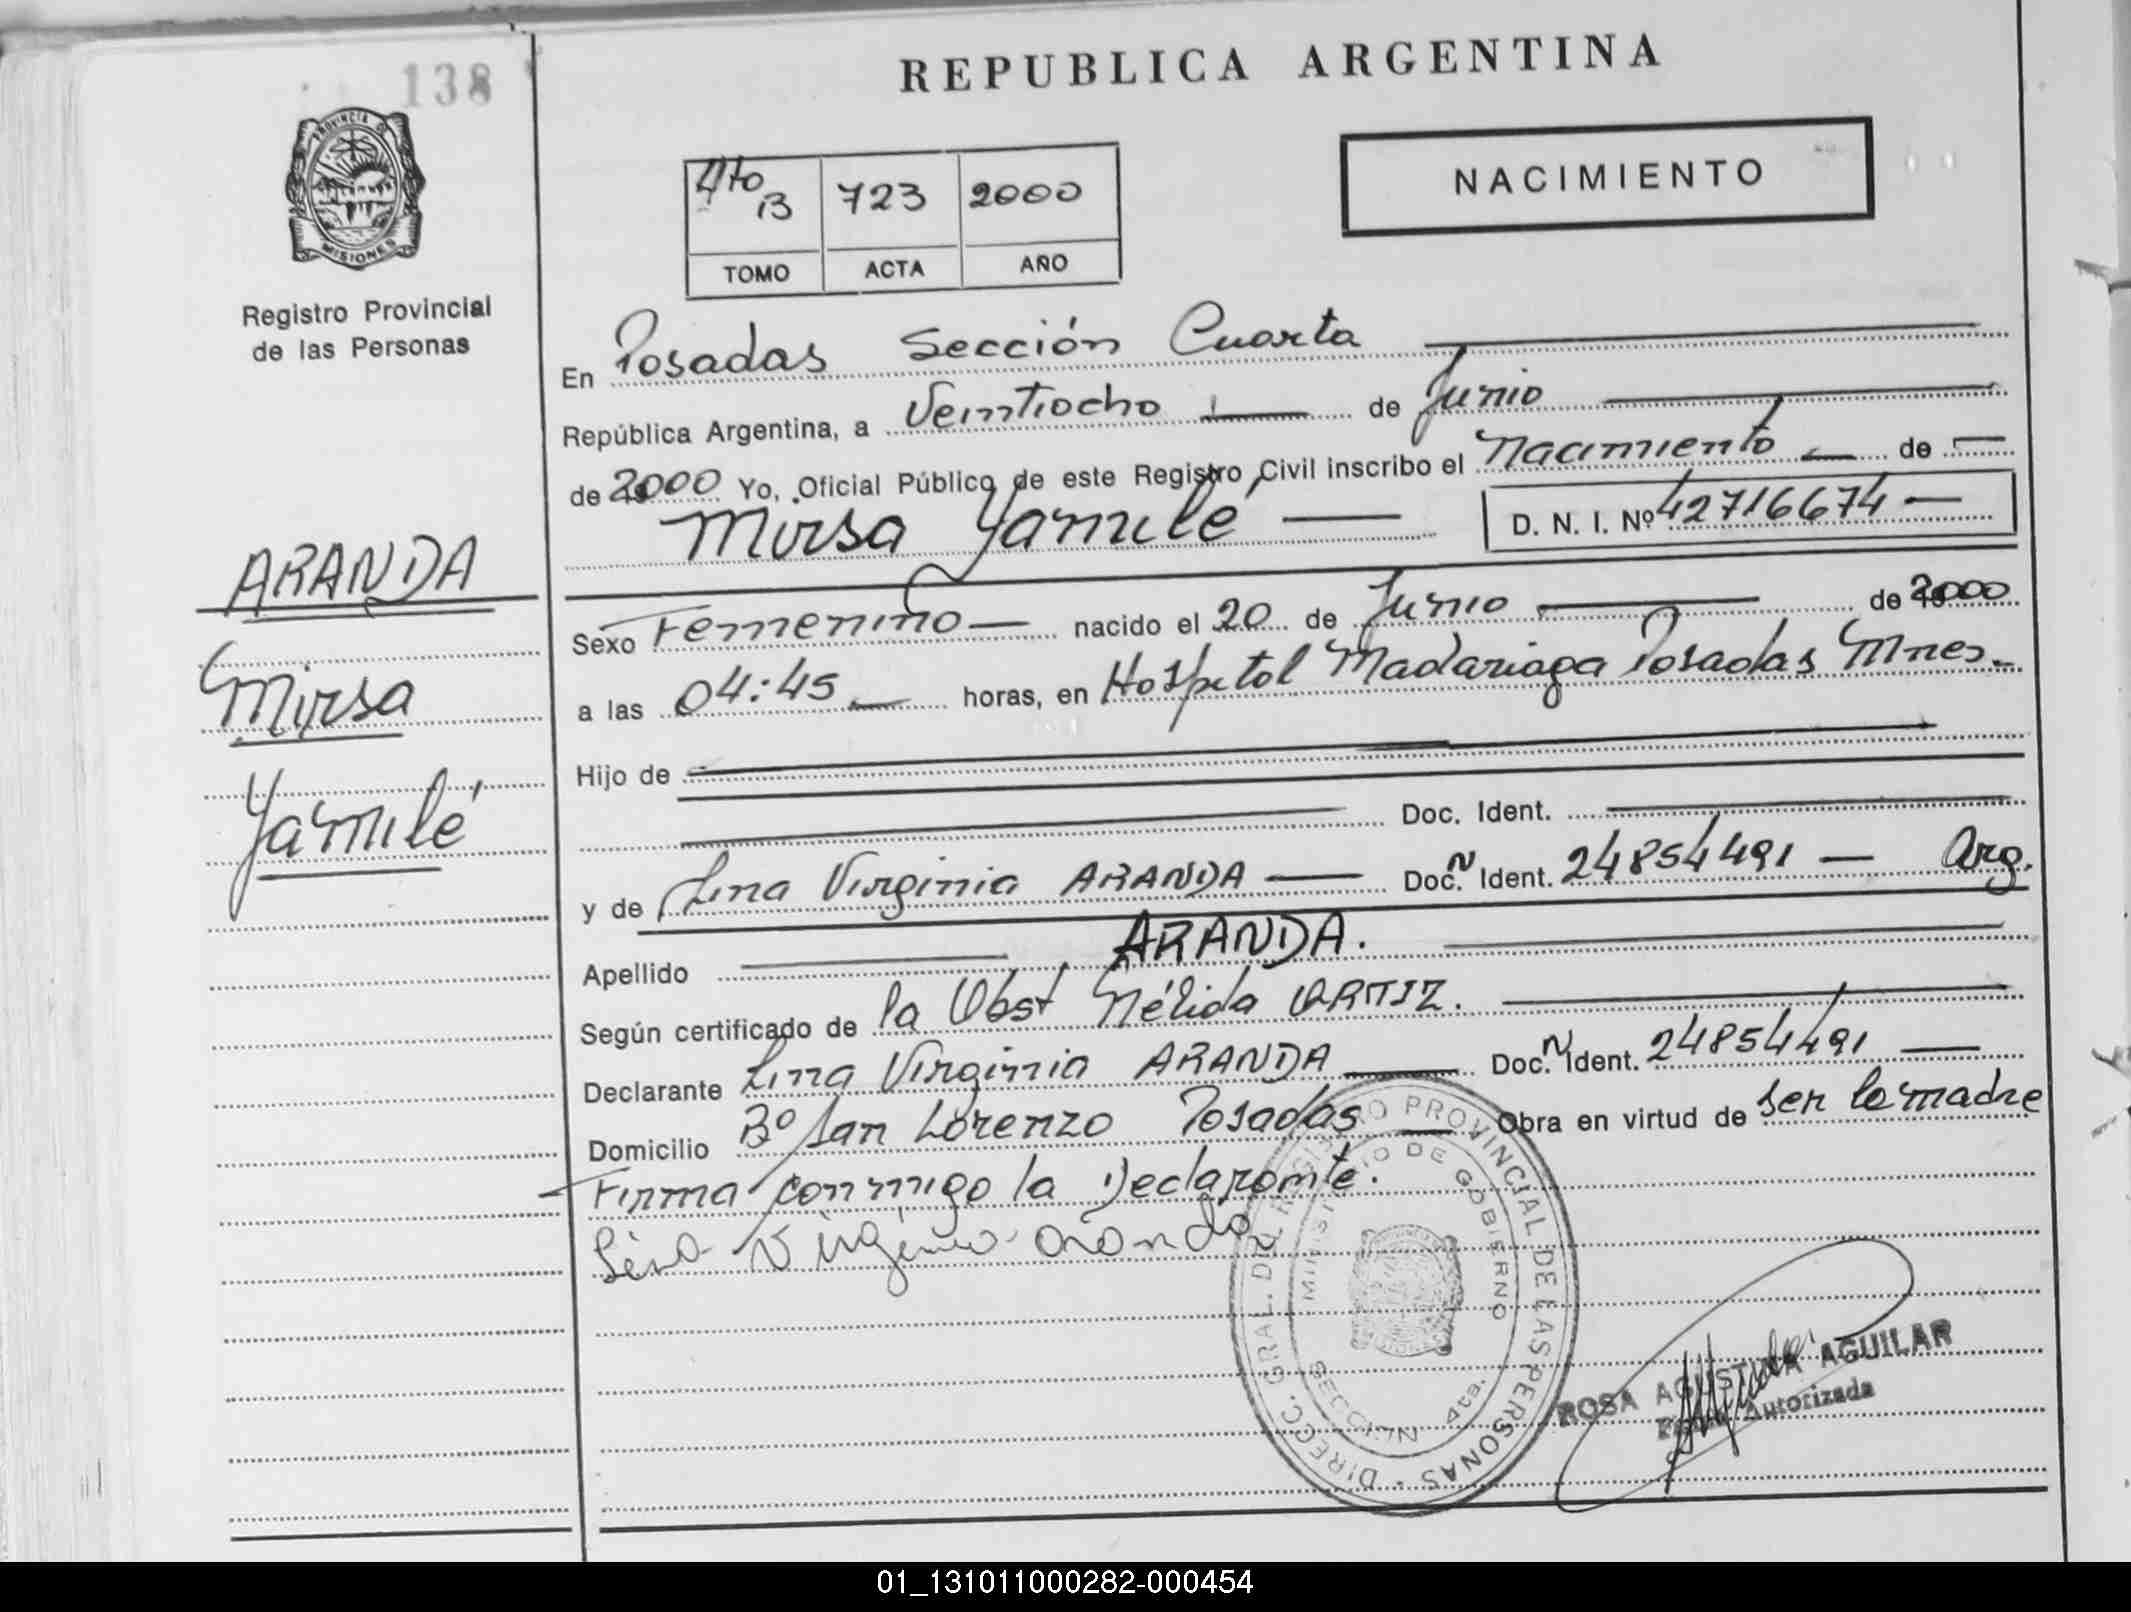 138
REPUBLICA ARGENTINA
PROVINCIA DE
MISIONES
Registro Provincial
de las Personas
4to B 723 2000
TOMO ACTA AÑO
NACIMIENTO
En Posadas Sección Cuarta
República Argentina, a Veintiocho de Junio
de 2000 Yo, Oficial Público de este Registro Civil inscribo el Nacimiento de
Mirsa Yamilé D. N. I. Nº 42716674
ARANDA
Mirsa
Yamilé
Sexo Femenino nacido el 20 de Junio de 2000
a las 04:45 horas, en Hospital Madariaga Posadas Mnes.
Hijo de
Doc. Ident.
y de Lina Virginia ARANDA Doc. N Ident. 24854491 Arg.
Apellido ARANDA.
Según certificado de la Obst Nélida ORTIZ.
Declarante Lina Virginia ARANDA Doc. N Ident. 24854491
Domicilio Bº San Lorenzo Posadas Obra en virtud de ser la madre
Firma conmigo la Declarante.
Lina Virginia Aranda
DIRECC. GRAL. DEL REGISTRO PROVINCIAL DE LAS PERSONAS
MINISTERIO DE GOBIERNO
SECCION 4ta.
ROSA AGUSTINA AGUILAR
Firma Autorizada
01_131011000282-000454